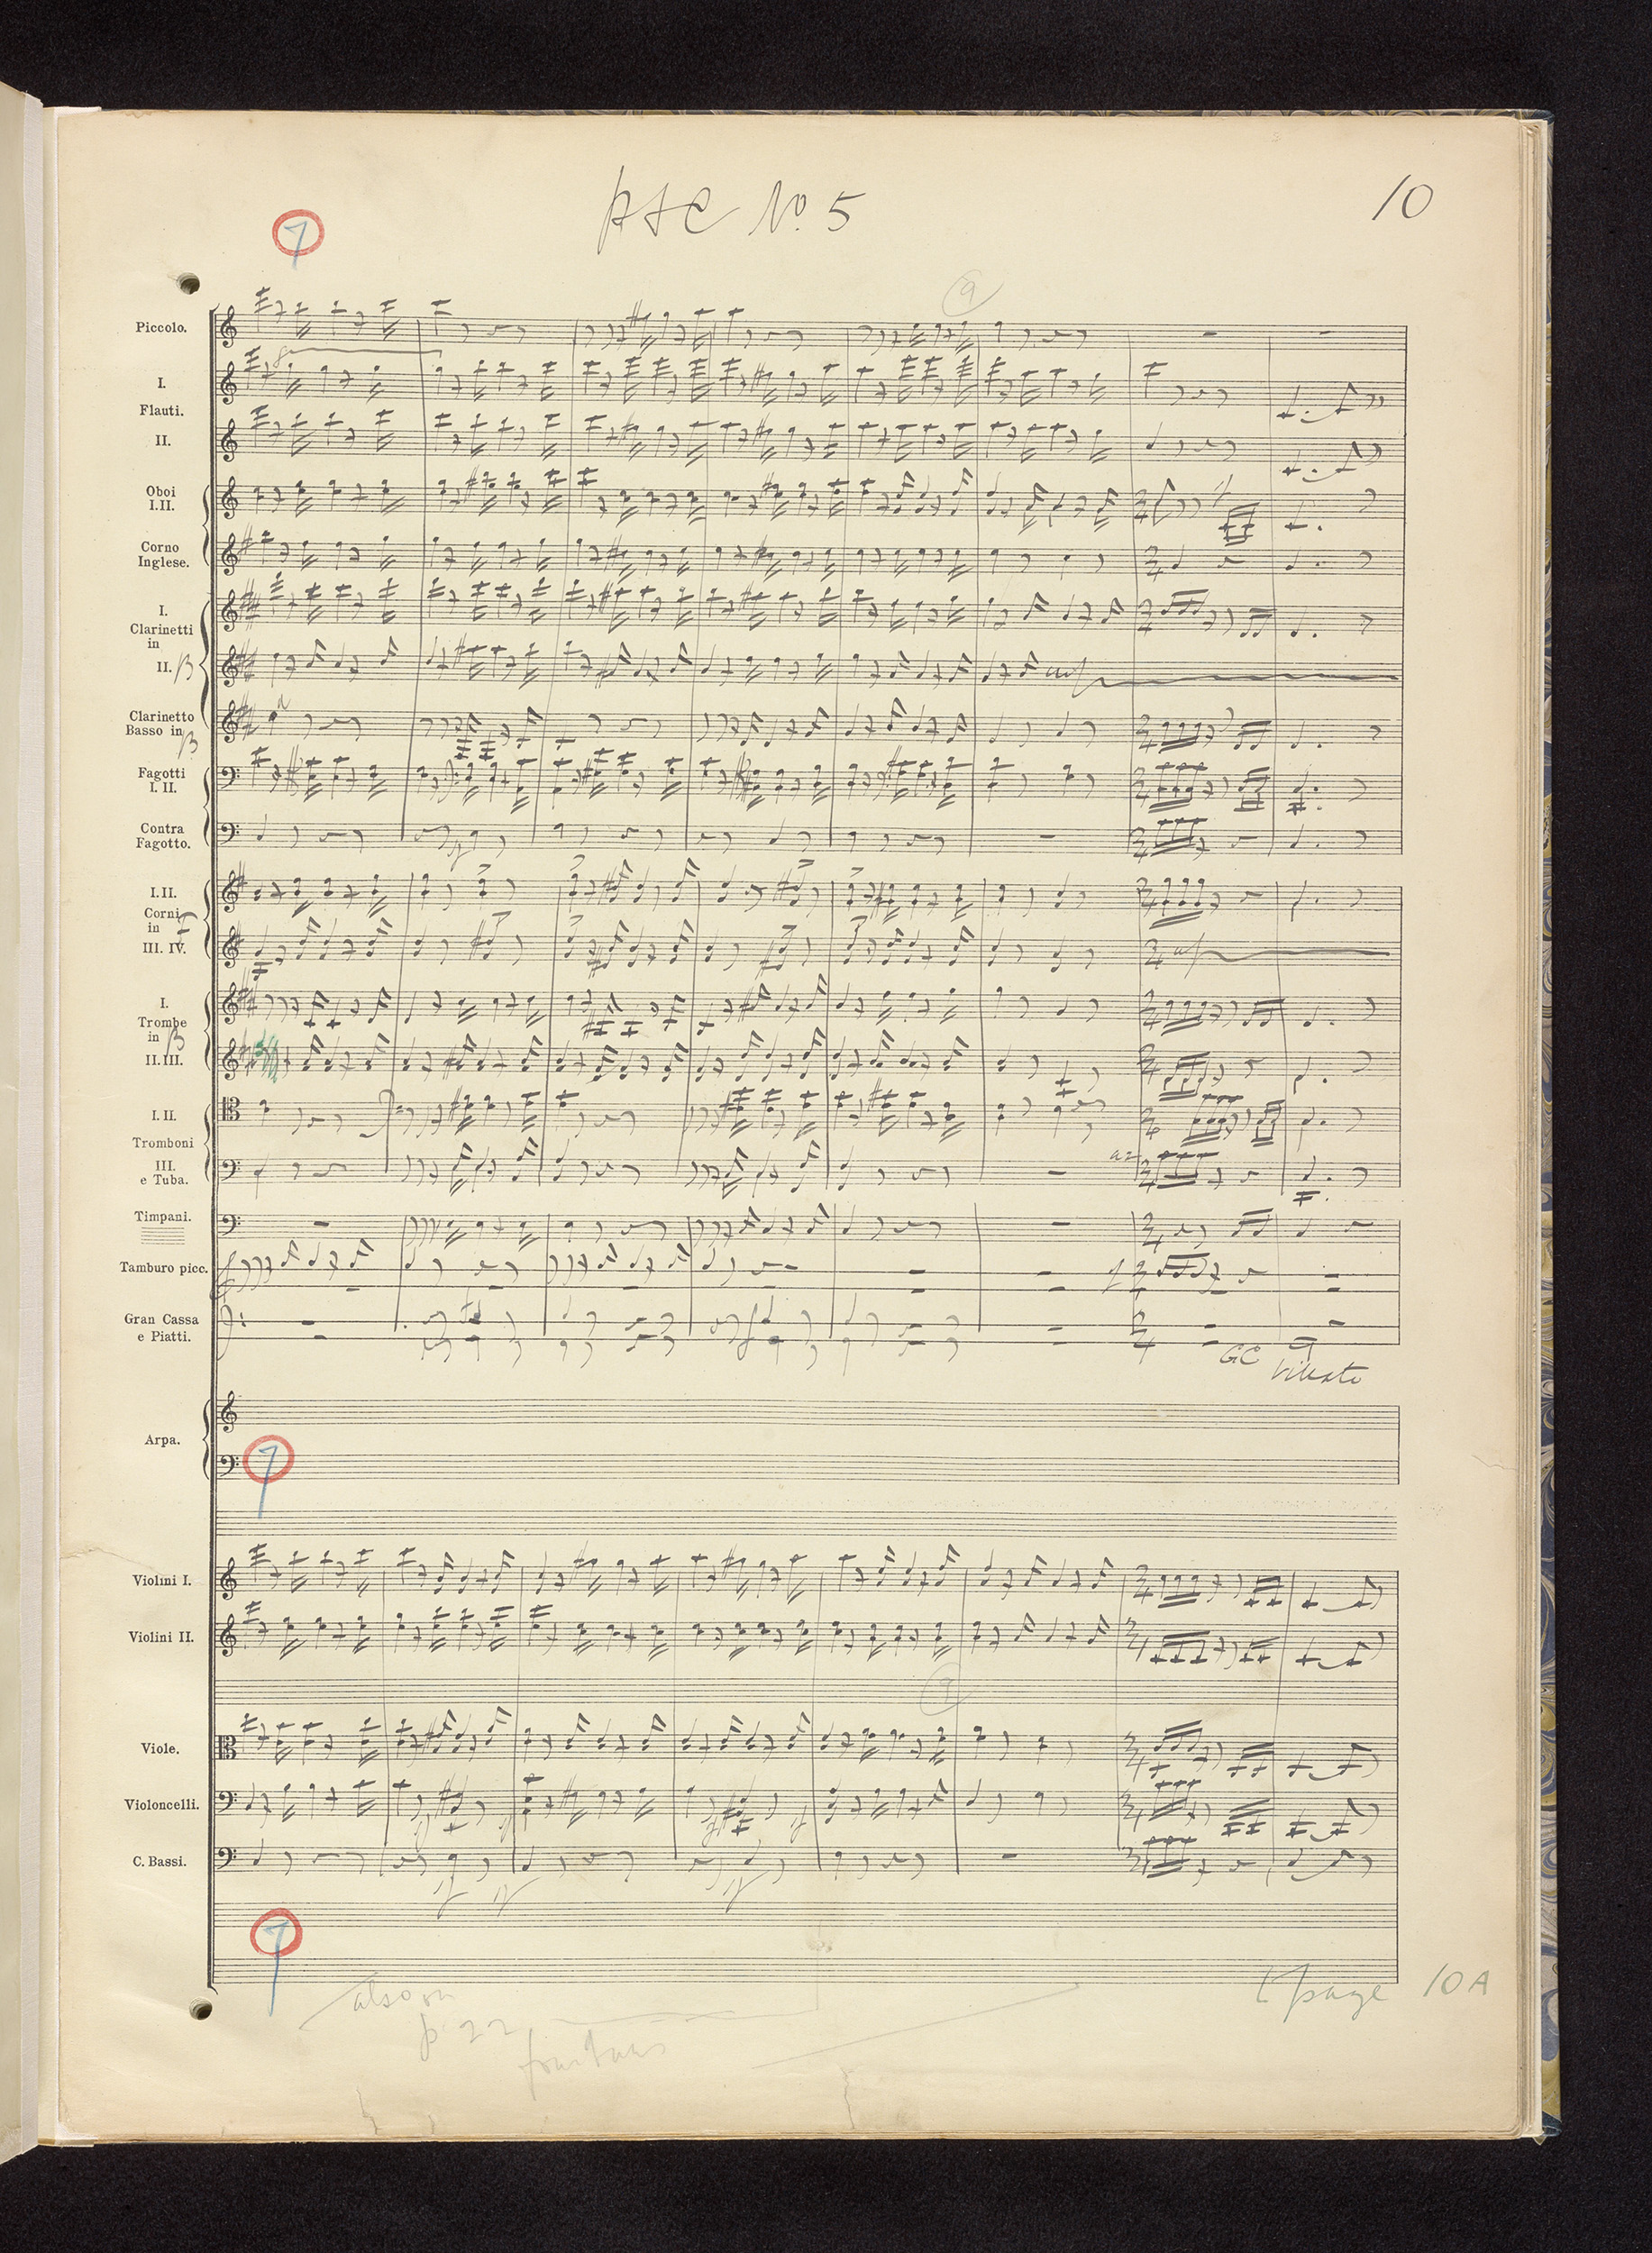 10
P & C No. 5
7
9
Piccolo.
I.
Flauti.
II.
Oboi
I.II.
Corno
Inglese.
I.
Clarinetti
in
II. B
Clarinetto
Basso in B
Fagotti
I. II.
Contra
Fagotto.
I. II.
Corni
in F
III. IV.
I.
Trombe
in B
II. III.
I. II.
Tromboni
III.
e Tuba.
a 2
Timpani.
Tamburo picc.
Gran Cassa
e Piatti.
GC
Arpa.
7
Violini I.
Violini II.
9
Viole.
Violoncelli.
C. Bassi.
7
page 10A
also on
p 22